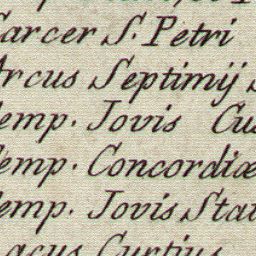 Carcer S. Petri
Arcus Septimij S
Temp. Jovis Cus
Temp. Concordiæ
Temp. Jovis Stat
Lacus Curtius